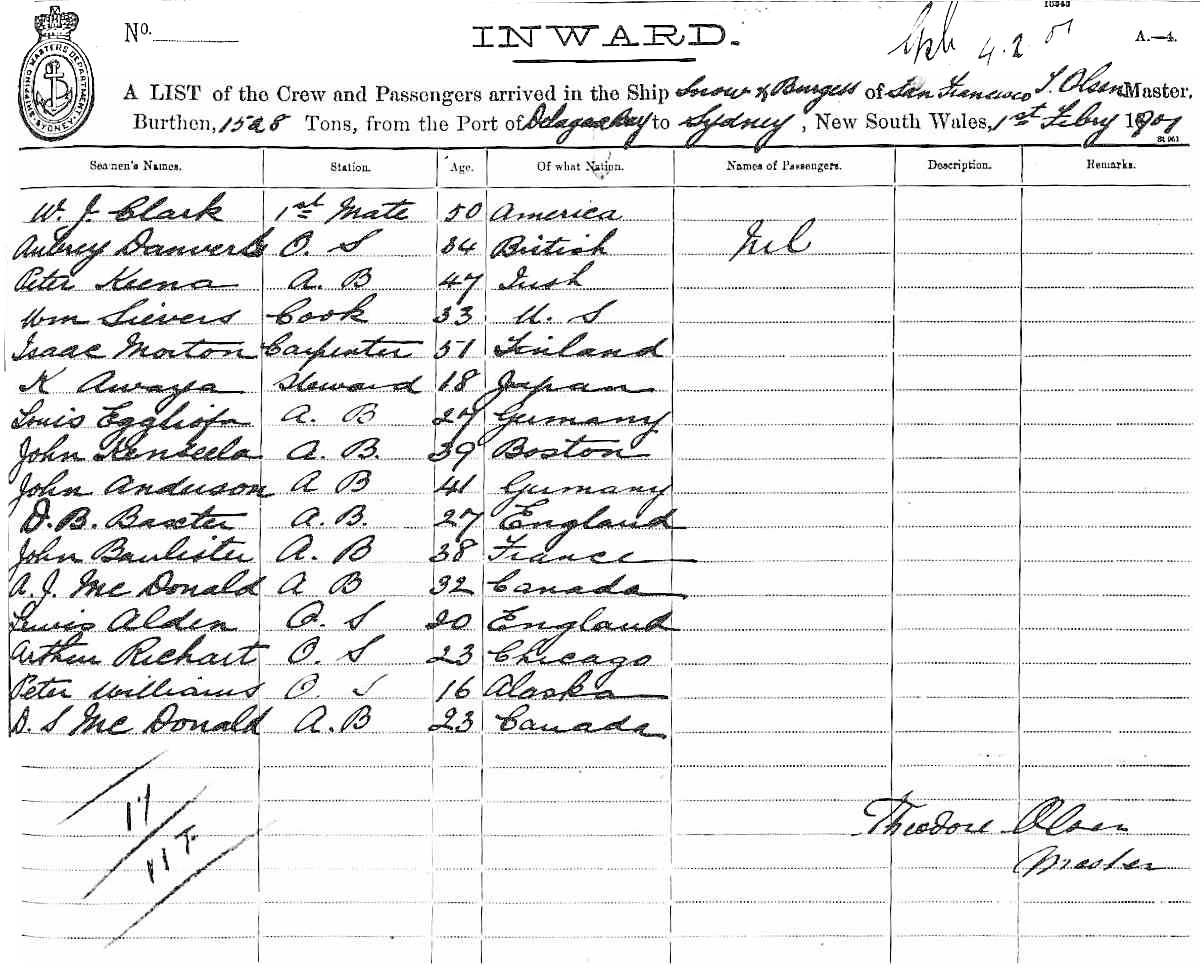 16343
No.
INWARD.
4.2.01
A.—4.
SHIPPING MASTERS DEPARTMENT SYDNEY
A LIST of the Crew and Passengers arrived in the Ship Snow & Burgess of San Francisco T. Olsen Master,
Burthen, 1528 Tons, from the Port of Delagoa Bay to Sydney, New South Wales, 1st Febry 1901
St 961
Seamen's Names. Station. Age. Of what Nation. Names of Passengers. Description. Remarks.
W. J. Clark 1st Mate 50 America
Aubrey O. S 34 British Nil
Peter Keena A. B 47 Irish
Wm Sievers Cook 33 U. S
Isaac Morton Carpenter 51 Finland
K Awaya Steward 18 Japan
Louis A. B 27 Germany
John A. B. 39 Boston
John Anderson A B 41 Germany
D. B. Baxter A. B. 27 England
John A. B 38 France
A. J. Mc Donald A B 32 Canada
Lewis Alden O. S 20 England
Arthur Richart O. S 23 Chicago
Peter Williams O S 16 Alaska
D. S Mc Donald A. B 23 Canada
17
Theodore Olsen
Master